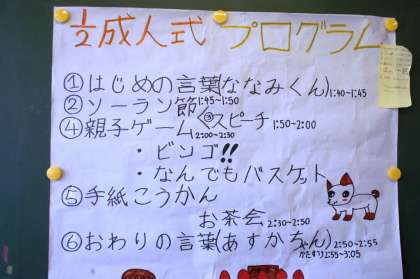 ½成人式 プログラム
①はじめの言葉(ななみくん)1:40~1:45
②ソーラン節1:45~1:50
③スピーチ1:50~2:00
④親子ゲーム2:00~2:30
・ビンゴ!!
・なんでもバスケット
⑤手紙こうかん
お茶会2:30~2:50
⑥おわりの言葉(あすかちゃん)2:50~2:55
かたずけ2:55~3:05